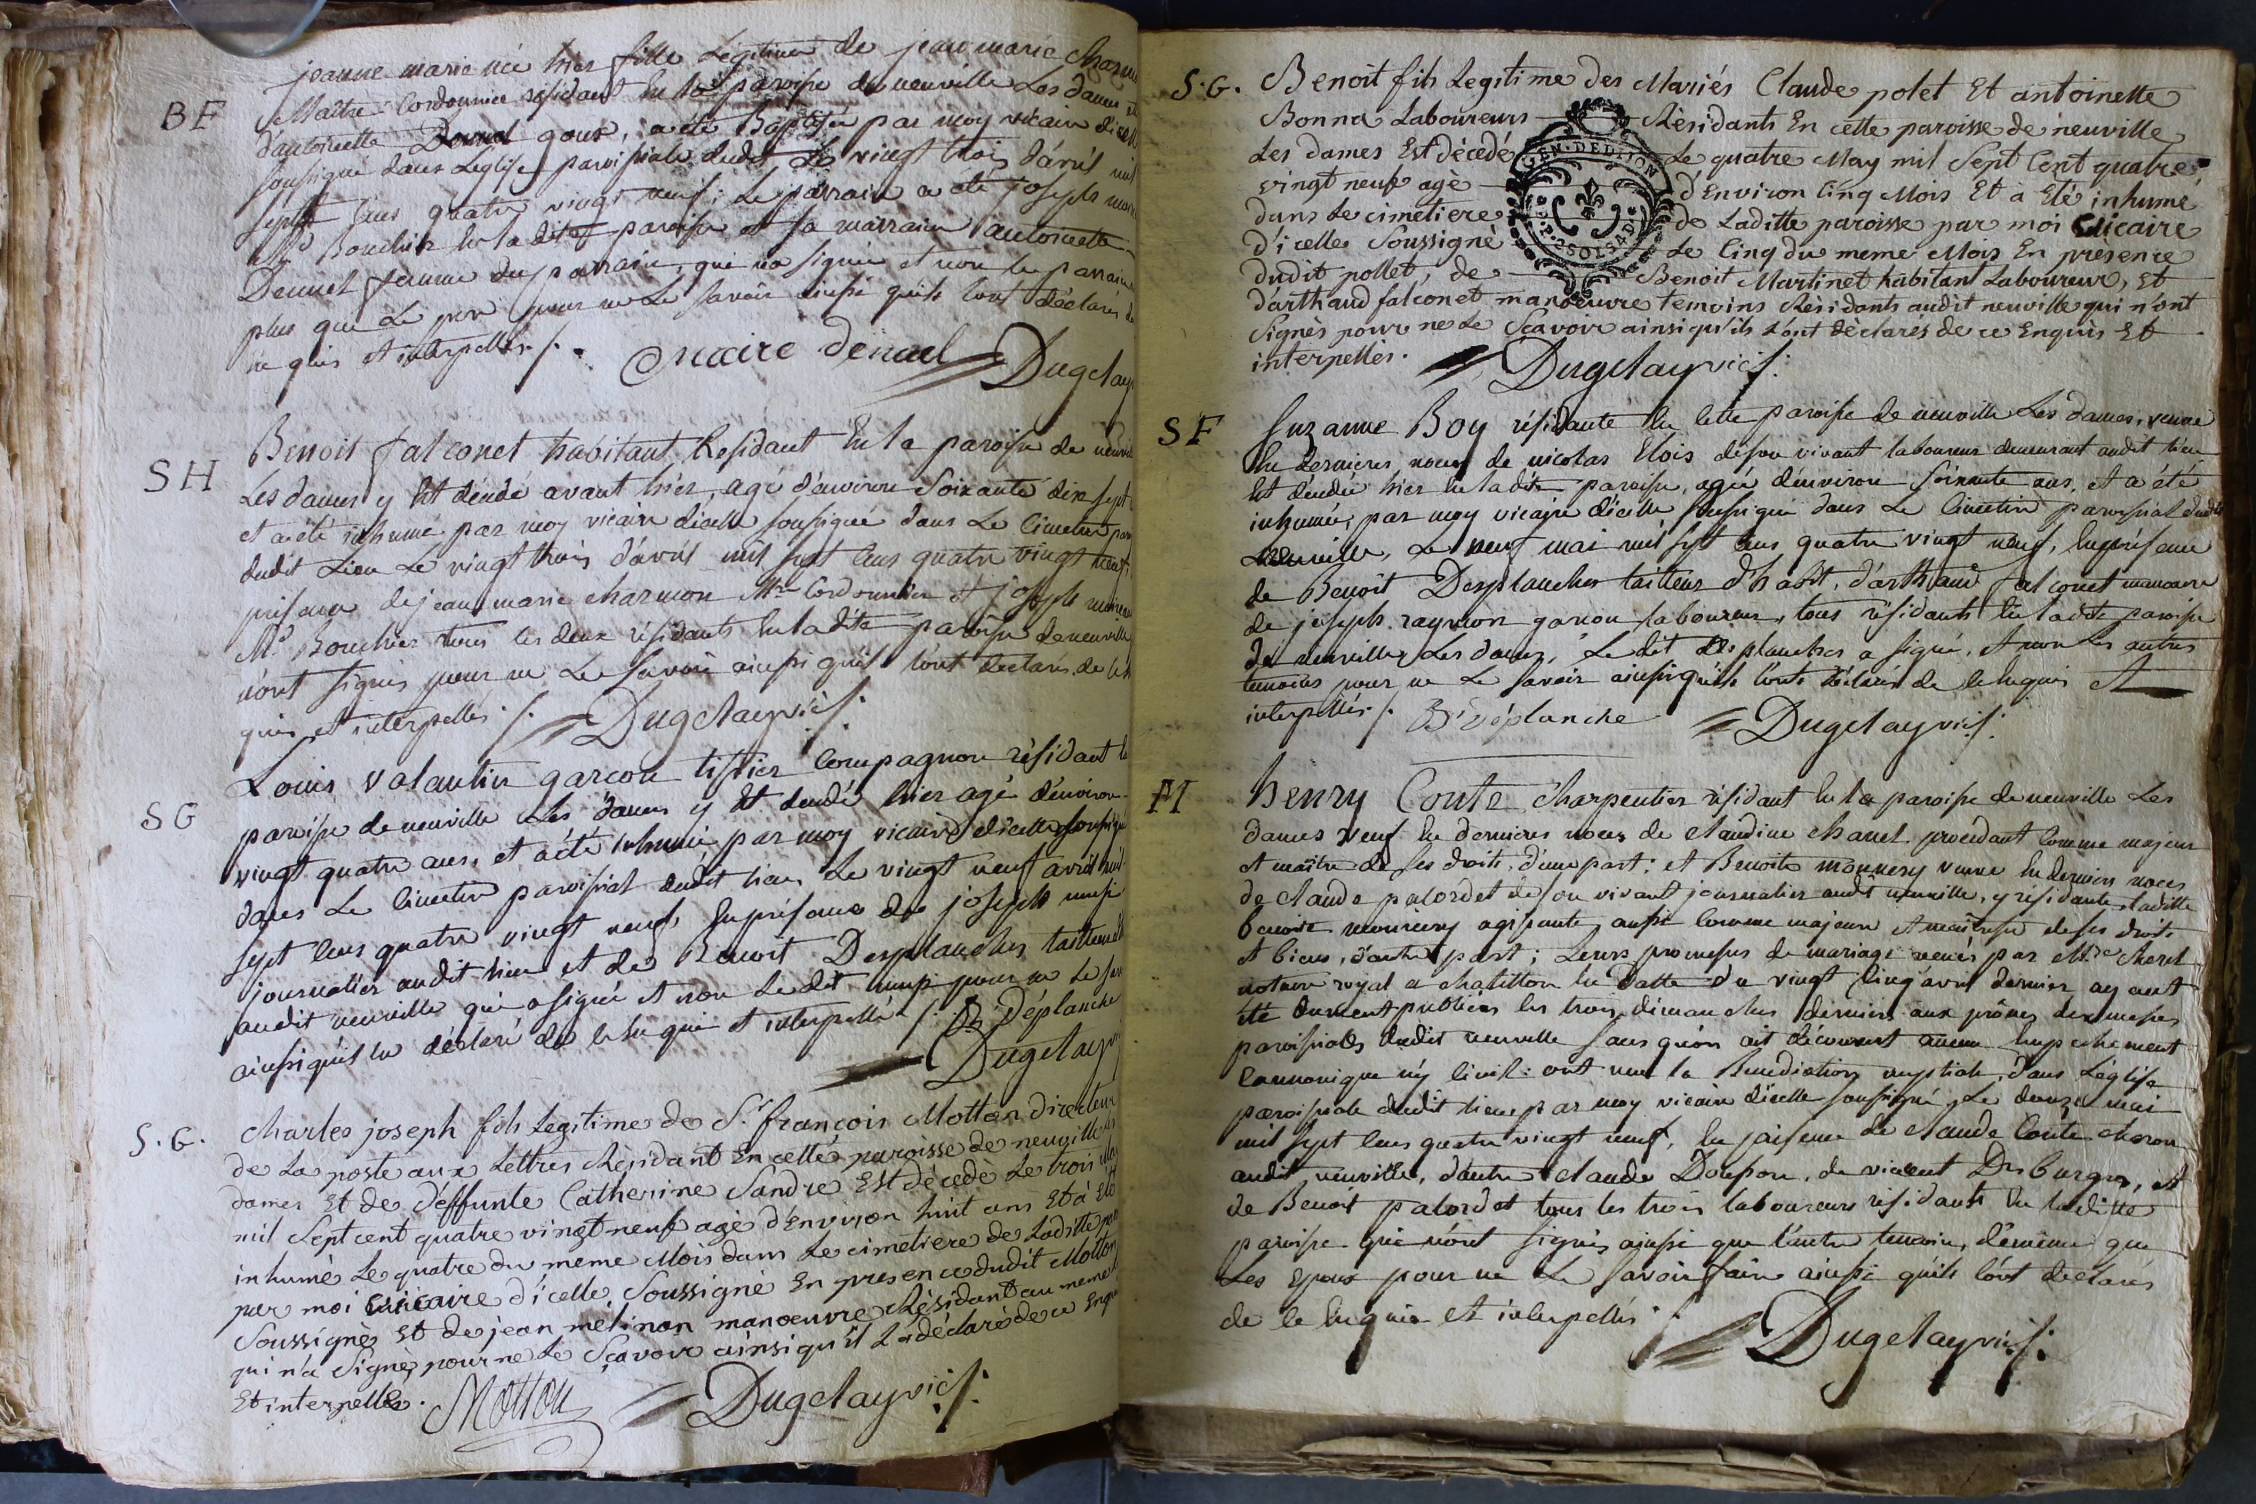 BF
jeanne marie née hier fille Legitime de jean marie
Maître Cordonnier résidant En la paroisse de neuville Les dames et
d'antoinette goux, a été Baptisée par moy vicaire d'icelle
soussigné dans L'eglise paroissiale dudit Le vingt trois d'avril mil
sept cens quatre vingt neuf; Le parrain a été joseph
Md Boucher En la dite paroisse et sa marraine antoinette
Denuel femme du parrain, qui a signée et non le parrain
plus que Le pere pour ne Le savoir ainsi qu'ils l'ont déclarés de
ce quis et interpellés ./.
Denuel Dugelay
SH
Benoit falconet habitant Residant En la paroisse de neuville
Les dames y Est décédé avant hier, agé d'environ Soixante dix sept
et a été inhumé par moy vicaire d'icelle soussigné dans Le Cimetiere
dudit Lieu Le vingt trois d'avril mil sept cens quatre vingt neuf,
presence de jean marie charmon Mre Cordonnier et joseph
Md Boucher tous les deux résidants En la dite paroisse de neuville
n'ont signés pour ne Le savoir ainsi qu'ils l'ont declarés de ce
quis et interpellés ./. Dugelay vic./.
SG
Louis valantin garcon tissier Compagnon résidant
paroisse de neuville Les dames y Est décédé hier agé d'environ
vingt quatre ans, et a été inhumé par moy vicaire d'icelle soussigné
dans Le Cimetiere paroissial dudit lieu Le vingt neuf avril mil
sept cens quatre vingt neuf, En présence de joseph
journalier audit lieu et de Benoit Desplanches tailleur
audit neuville qui a signé et non Le dit pour ne Le
ainsi qu'il l'a déclaré de ce En quis et interpellé ./. Bt Déplanche
Dugelay
S.G.
Charles joseph fils Legitime de Sr. françois Motton directeur
de La poste aux Lettres Résidant En cette paroisse de neuville
dames Et de déffunte Catherine Sandre Est décédé Le trois
mil Sept cent quatre vingt neuf agè d'Environ huit ans Et à Eté
inhumè Le quatre du meme Mois dans Le cimetiere de Laditte
par moi vicaire d'icelle Soussignè En presence dudit Motton
Soussignè Et de jean mélinon manœuvre Rèsidant au meme
qui n'a Signè pour ne Le Sçavoir ainsi qu'il La déclarè de ce
Et interpellè.
Motton Dugelay vic./.
S.G.
Benoit fils Legitime des Mariés Claude polet Et antoinette
Bonna Laboureurs Rèsidants En cette paroisse de neuville
Les dames Est décedé Le quatre May mil Sept Cent quatre
vingt neuf agè d'Environ Cinq Mois Et à Eté inhumé
dans Le cimetiere de Laditte paroisse par moi vicaire
d'icelle Soussignè Le Cinq du meme Mois En présence
dudit pollet, de Benoit Martinet habitant Laboureur, Et
d'arthaud falconet manœuvre temoins Rèsidants audit neuville qui n'ont
Signès pour ne Le Sçavoir ainsi qu'ils L'ont dèclarés de ce Enquis Et
interpellès.
GEN. DE DIJON
2 SOLS 4 D
Dugelay vic./.
SF
Suzanne Boy résidante En Cette paroisse de neuville Les dames, veuve
En dernieres noces de nicolas Elois de son vivant laboureur demeurant audit lieu
Est décédée hier En la dite paroisse, agée d'environ Soixante ans, et a été
inhumée par moy vicaire d'icelle soussigné dans Le Cimetiere paroissial dudit
neuville, Le neuf mai mil sept cens quatre vingt neuf, En présence
de Benoit Desplanches tailleur d'habit, d'arthaud falconet manœuvre
de joseph raymon garçon laboureur, tous résidants En la dite paroisse
de neuville Les dames, Le dit desplanches a signé, et non Les autres
temoins pour ne Le savoir ainsi qu'ils l'ont déclarés de ce Enquis et
interpellés ./. Bt Déplanche Dugelay vic./.
M
henry Conte charpentier résidant En la paroisse de neuville Les
dames veuf En dernieres noces de claudine chanel procedant Comme majeur
et maitre de ses droits, d'une part; et Benoite monnery veuve En dernieres noces
de claude palordet de son vivant journalier audit neuville, y résidante, laditte
benoite monnery agissante aussi Comme majeure et maitresse de ses droits
et biens, d'autre part; Leurs promesses de mariage reçues par Me
notaire royal a chatillon En datte du vingt Cinq avril dernier ayant
été duement publiées les trois dimanches derniers aux prônes des messes
paroissiales dudit neuville sans qu'on ait découvert aucun Empechement
Cannonique n'y Civil: ont reçu la Benediction nuptiale, dans L'eglise
paroissiale dudit lieu par moy vicaire d'icelle soussigné Le douze mai
mil sept cens quatre vingt neuf, En présence de claude Conte charon
audit neuville, d'autre claude Doupon, de vincent Desburges, et
de Benoit palordet tous les trois laboureurs résidants En laditte
paroisse qui n'ont signés ainsi que l'autre temoin, de même que
Les Epoux pour ne Le savoir faire ainsi qu'ils l'ont declarés
de ce Enquis et interpellés ./.
Dugelay vic./.